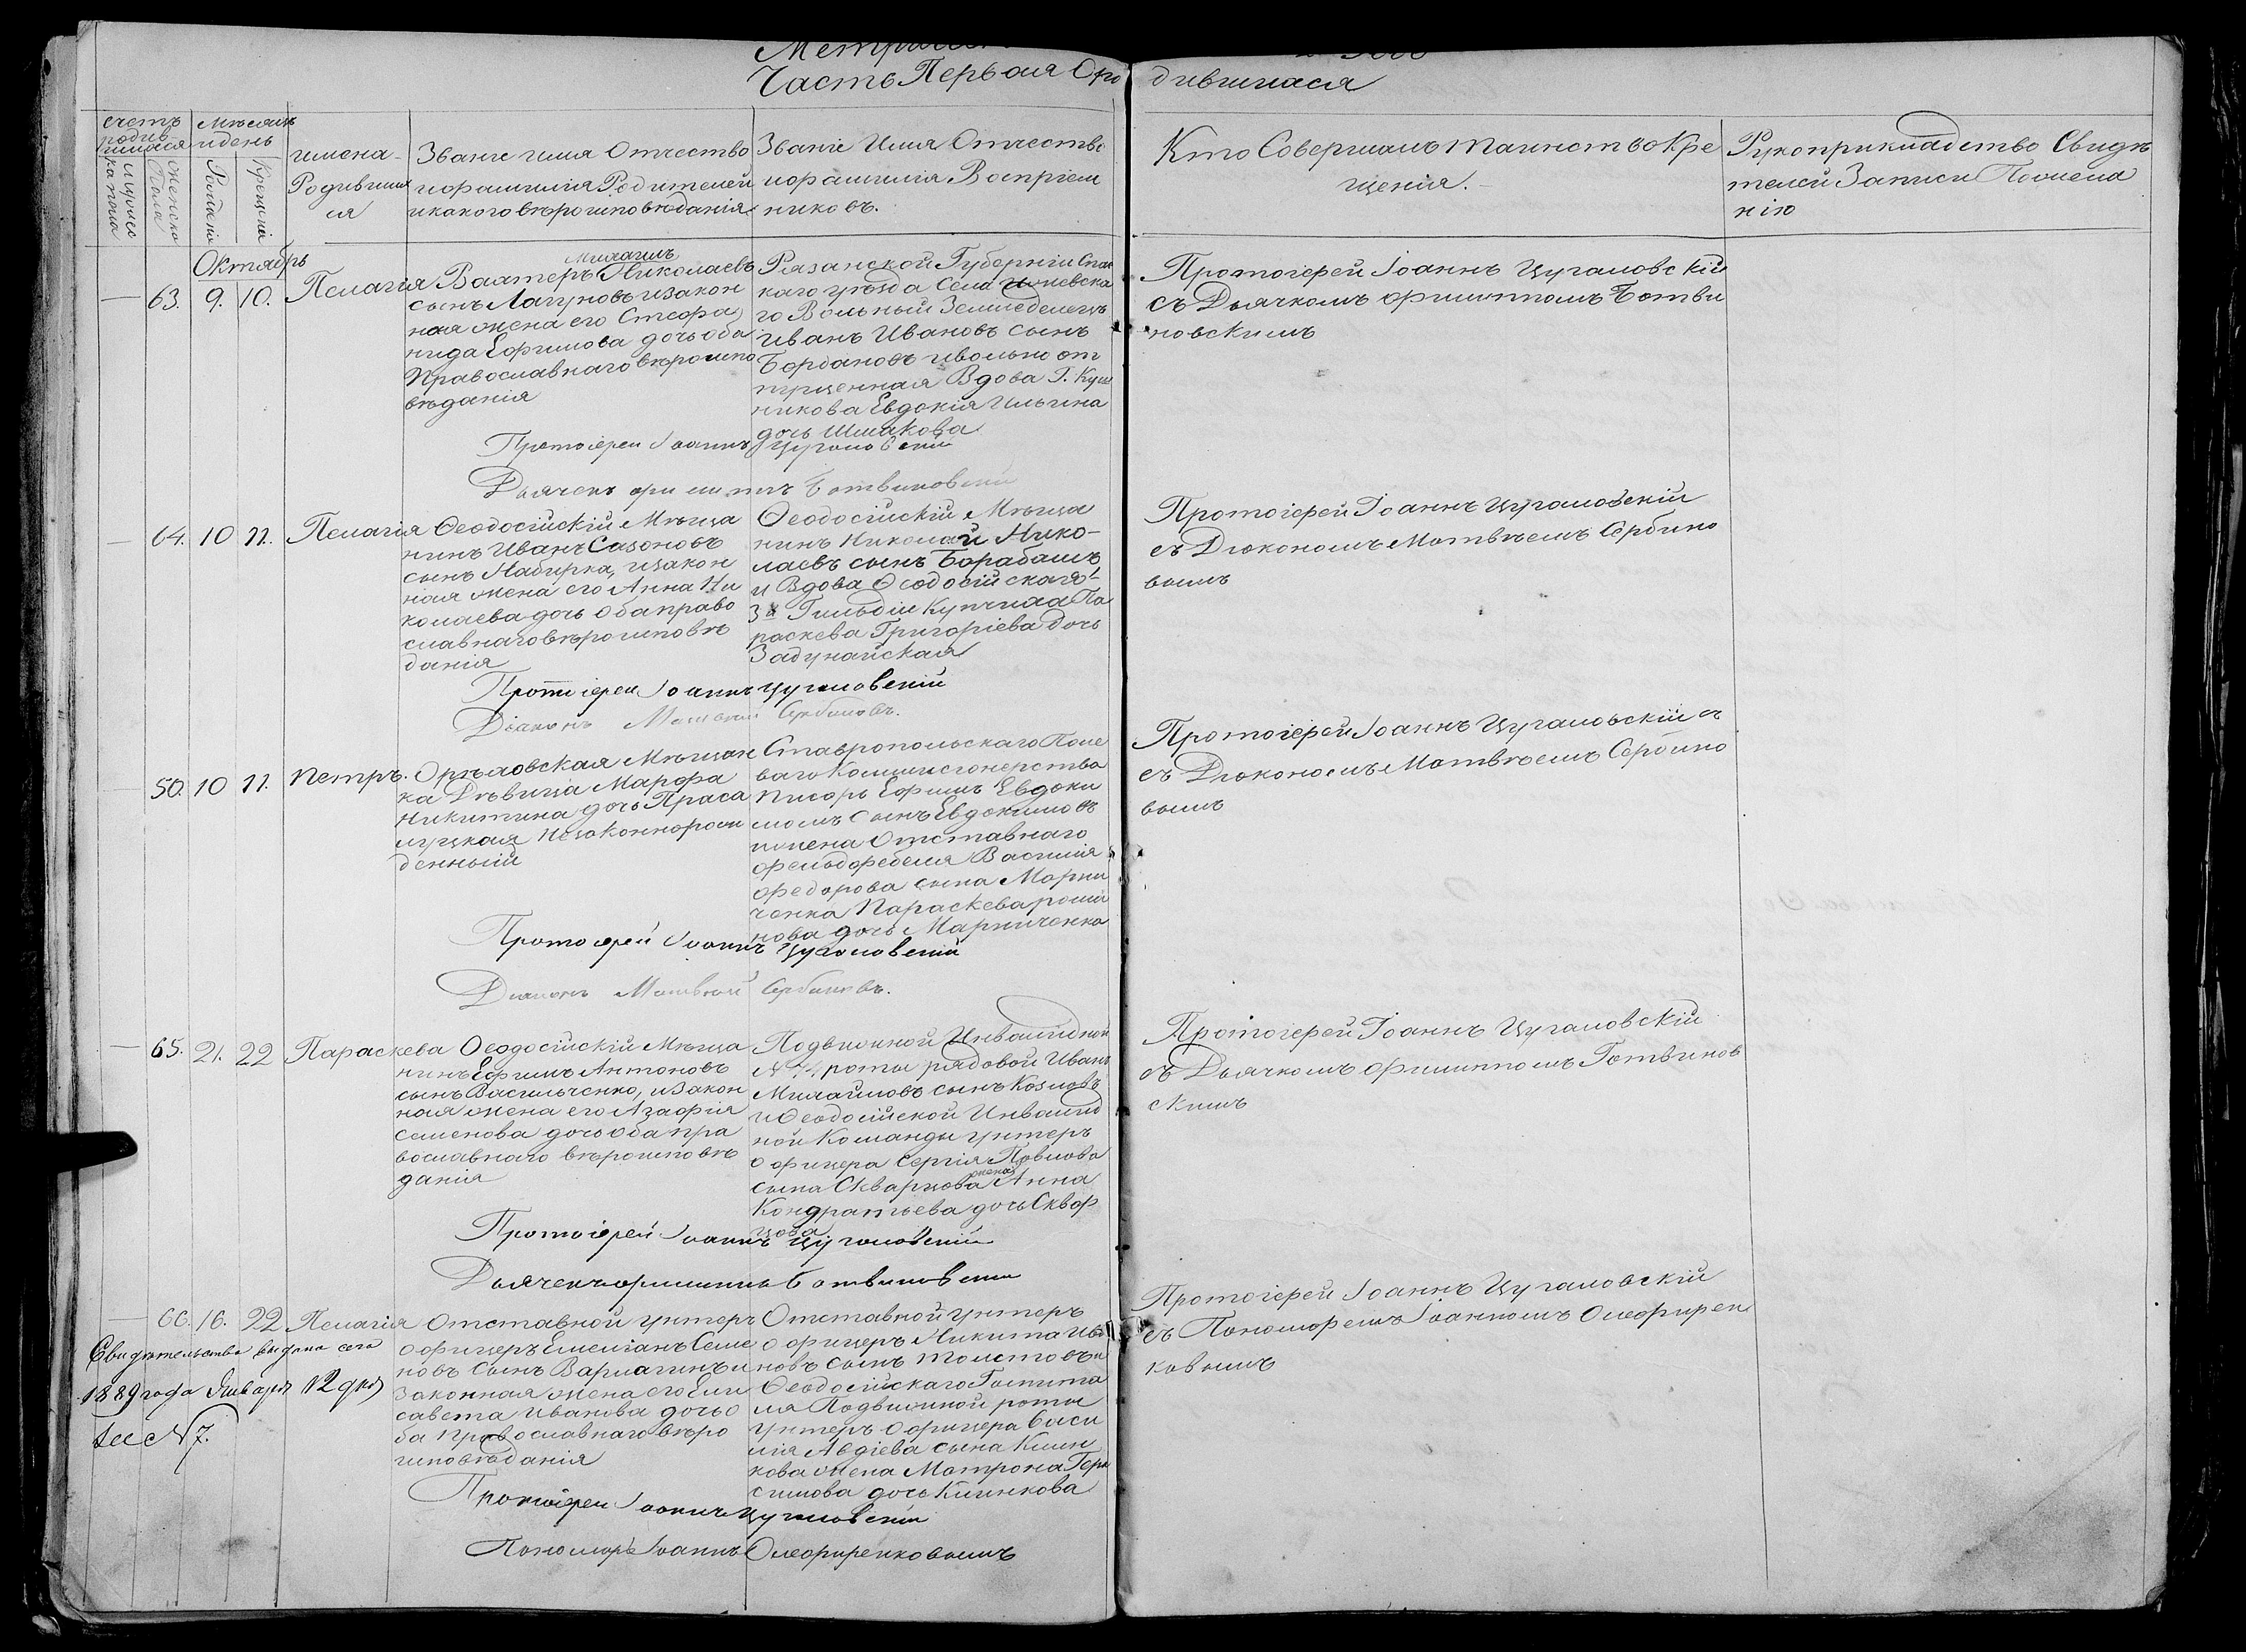 Часть Первая О ро дившихся
счетъ родив шихся
Мѣсяцъ и день
имена Родивших ся
Званіе имя Отчество и фамилія Родителей и какого вѣроисповѣданія
Званіе Имя Отчество и фамилія Воспріем никовъ.
Кто Совершалъ таинство Кре щенія.
Рукоприкладство Свидѣ телей Записи По жела нію
мужеска пола
женска Пола
Рожденія
Крещенія
Октябрь
63. 9. 10. Пелагія
Михаилъ
Вахтеръ Николаевъ
сынъ Лагуновъ и закон
ная жена его Стефа
нида Ефимова дочь оба
Православнаго вѣроиспо
вѣданія
Рязанской Губерніи Спас
каго уѣзда Села
го Вольный Земледелецъ
Иванъ Ивановъ сынъ
Бардановъ и вольно от
пущенная Вдова Г. Куш
никова Евдокія Ильина
дочь Шмакова
Протоіерей Іоаннъ Цугаловскій
съ Дьячкомъ Филиппомъ Ботви
новскимъ
Протоіерей Іоаннъ Цугаловскій
Дьячекъ Филиппъ Ботвиновскій
64. 10 11. Пелагія
Ѳеодосійскій Мѣща
нинъ Иванъ Сазоновъ
сынъ Набирка, и закон
ная жена его Анна Ни
колаева дочь оба право
славнаго вѣроисповѣ
данія
Ѳеодосійскій Мѣща
нинъ Николай Нико-
лаевъ сынъ Барабашъ
и Вдова Ѳеодосійская
3й Гильдіи Купчиха Па
раскева Григоріева дочь
Задунайская
Протоіерей Іоаннъ Цугаловскій
съ Дьякономъ Матвѣемъ Сербино
вымъ
Протоіерей Іоаннъ Цугаловскій
Діаконъ Матвей Сербиновъ.
50. 10 11. Петръ.
Орѣховская Мѣщан
ка Дѣвица Марфа
Никитина дочь Праса
луцкая Незаконнорож
денный
Ставропольскаго Поле
ваго Коммисіонерства
Писарь Ефимъ Евдоки
момъ сынъ Евдокимовъ
и жена Отставнаго
фельдфебеля Василія
Федорова сына Марни
ченка Параскева
нова дочь Марниченка
Протоіерей Іоаннъ Цугаловскій съ
съ Дьякономъ Матвѣемъ Сербино
вымъ
Протоіерей Іоаннъ Цугаловскій
Діаконъ Матвей Сербиновъ.
65. 21. 22 Параскева
Ѳеодосійскій Мѣща
нинъ Ефимъ Антоновъ
сынъ Васильченко, и Закон
ная жена его Агафія
Семенова дочь Оба пра
вославнаго вѣроисповѣ
данія
Подвижной Инвалидной
роты рядовой Иванъ
Михайловъ сынъ Козловъ
и Ѳеодосійской Инвалид
ной Команды унтеръ
офицера Сергія Павлова
сына Скварцова жена Анна
Кондратьева дочь Сквор
цова
Протоіерей Іоаннъ Цугаловскій
съ Дьячкомъ Филиппомъ Готвинов
скимъ
Протоіерей Іоаннъ Цугаловскій
Дьячекъ Филиппъ Ботвиновскій
66. 16. 22 Пелагія
Отставной унтеръ
офицеръ Емеліанъ Семе
новъ сынъ Варлагинъ и
Законная жена его Ели
савета Иванова дочь о
ба Православнаго вѣро
исповѣданія
Отставной унтеръ
офицеръ Никита Ива
новъ сынъ Толстовъ и
Ѳеодосійскаго Гошпита
ля Подвижной роты
Унтеръ Офицера Васи
лія Авдіева сына Клин
кова жена Матрона Гера
симова дочь Клинкова
Протоіерей Іоаннъ Цугаловскій
съ Пономаремъ Іоанномъ Олефирен
ковымъ
Свидѣтельство выдано сего
1889 года Января 12 дня
за № 7.
Протоіерей Іоаннъ Цугаловскій
Пономарь Іоаннъ Олефиренковымъ